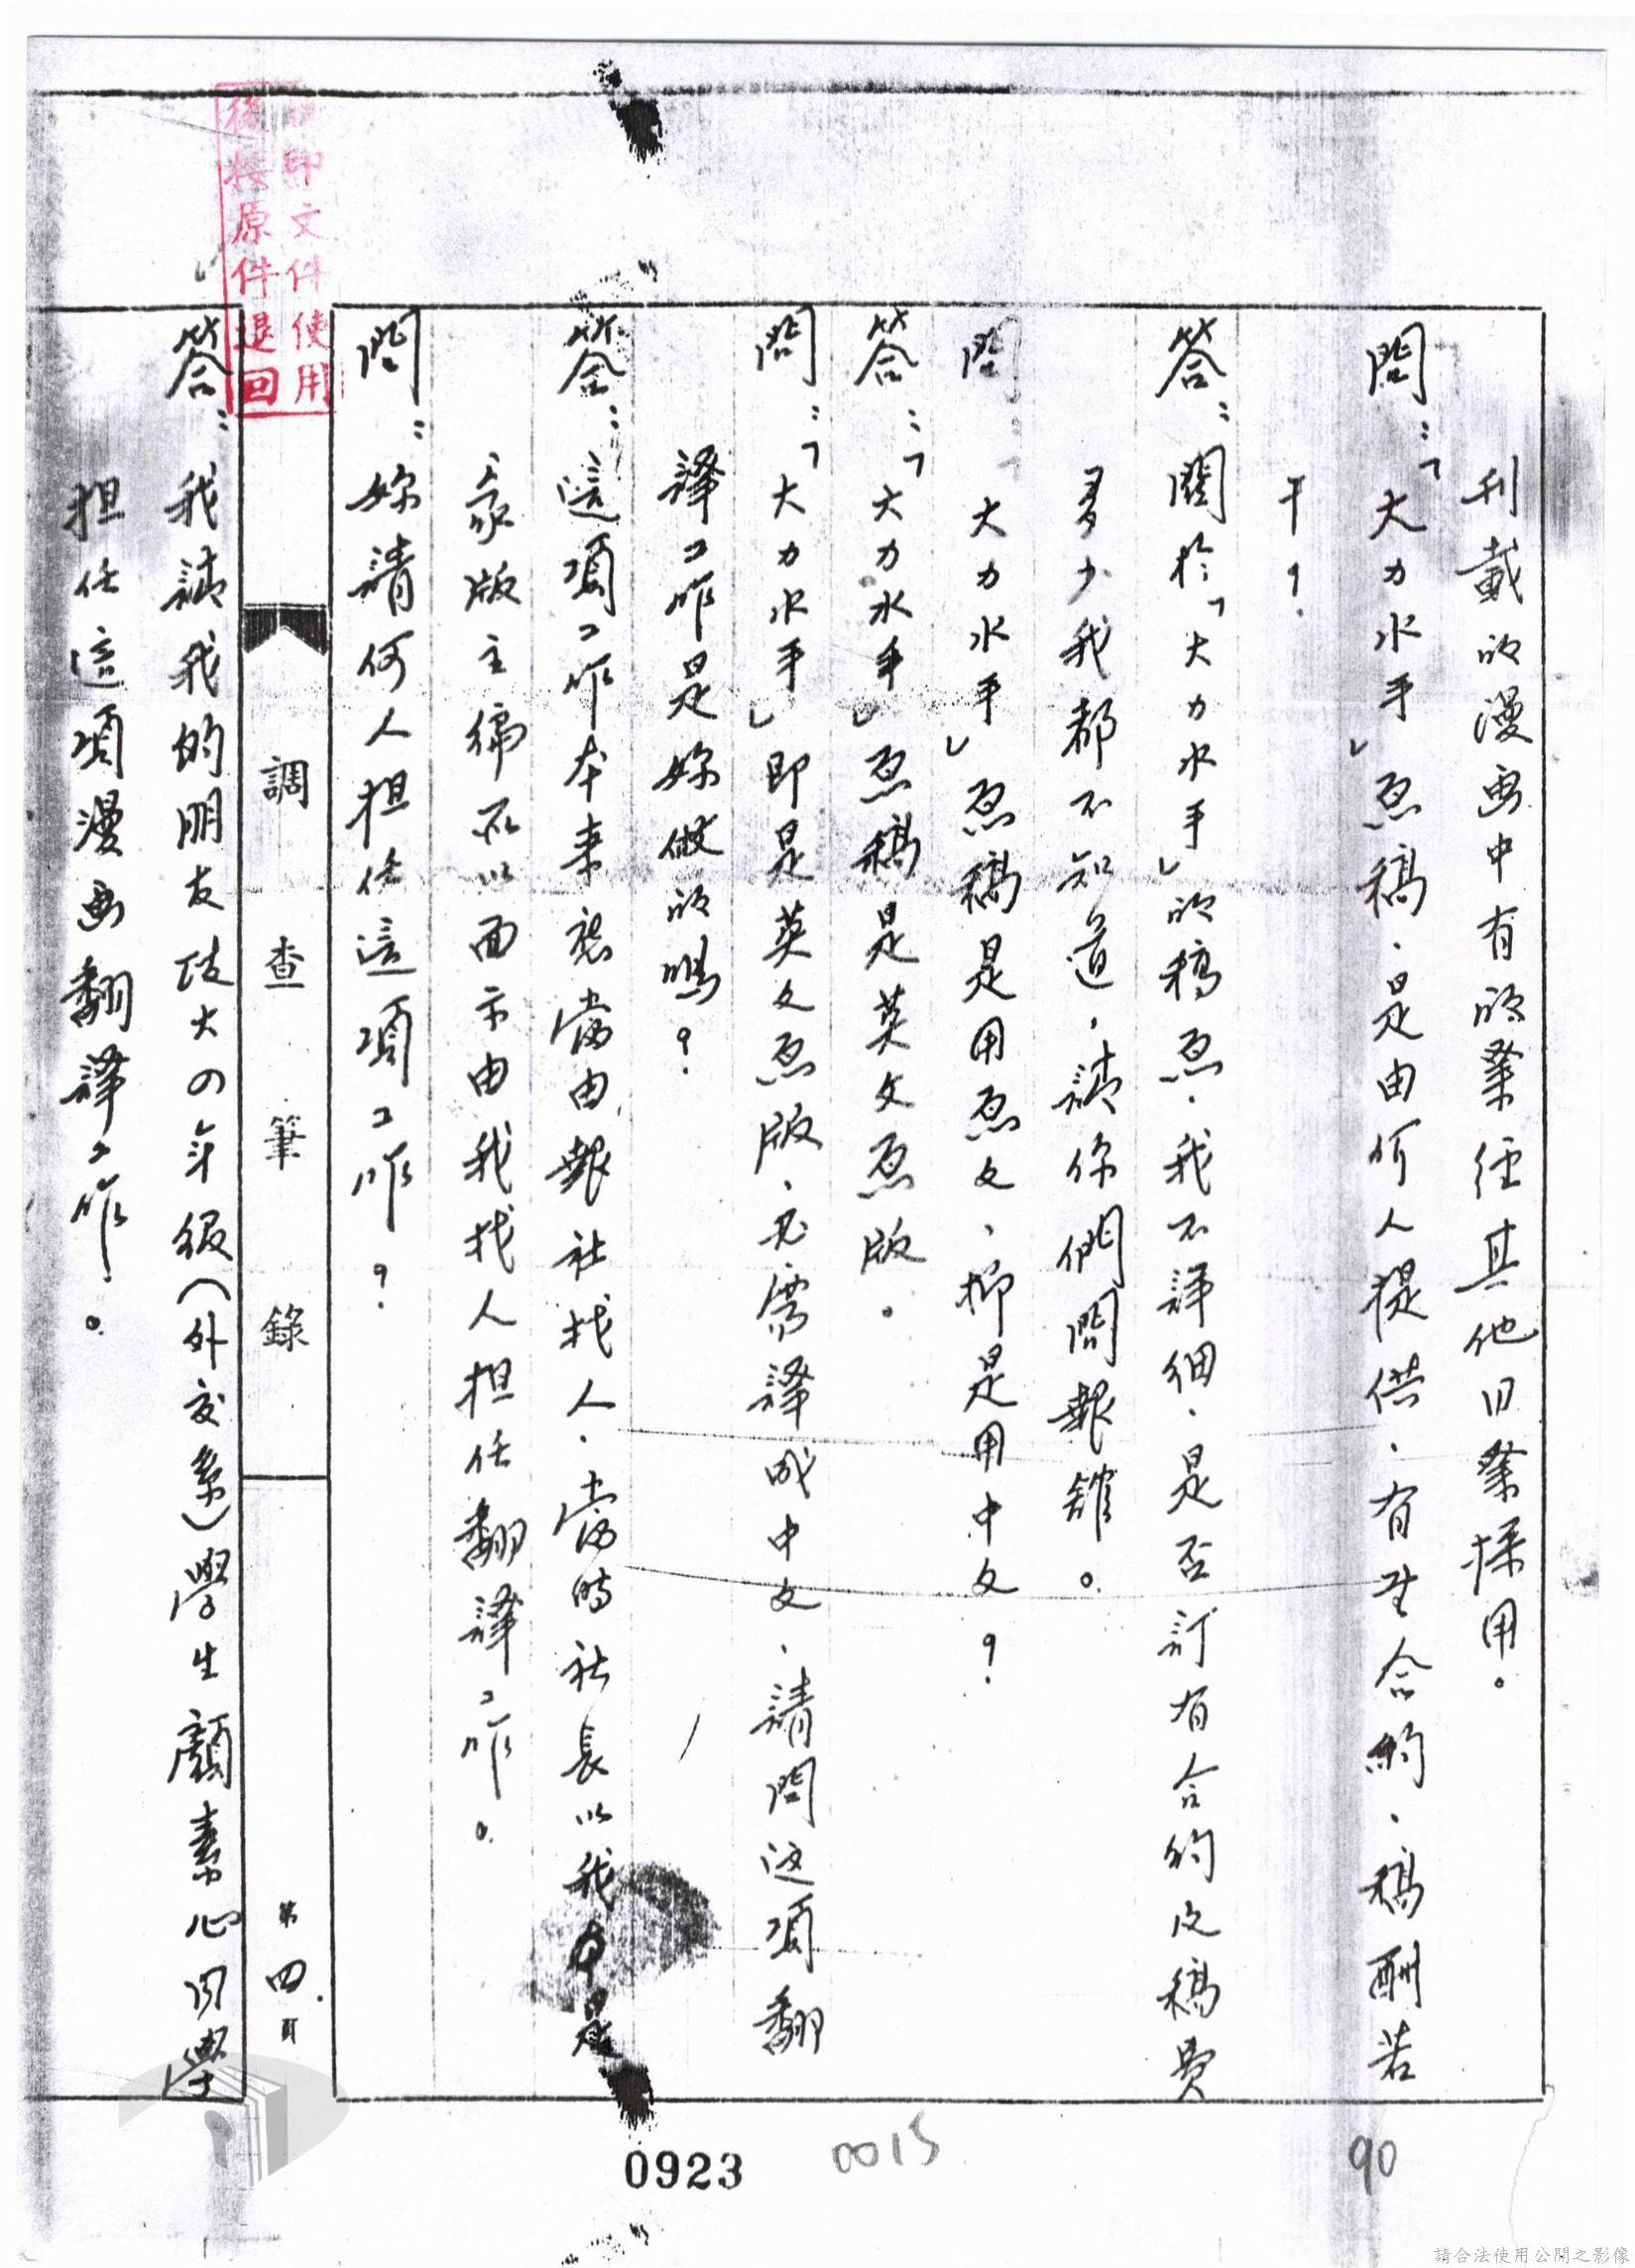 刊載的漫画中有的業経其他日業採用。
問：「大力水手」原稿、是由何人提供、有無合約、稿酬若
干？
答：關於「大力水手」的稿原、我不詳細、是否訂有合約及稿費
多少我都不知道、請你們問報館。
問：「大力水手」原稿是用原文、抑是用中文？
答：「大力水手」原稿是英文原版。
問：「大力水手」即是英文原版、必需譯成中文、請問這項翻
譯工作是妳做的嗎？
答：這項工作本来應當由報社找人、當時社長以我本是
家版主編所以面示由我找人担任翻譯工作。
問：妳請何人担任這項工作？
調查筆錄
第四頁
答：我請我的朋友政大の年級（外交系）學生顏素心同學
担任這項漫画翻譯工作。
印文件使用
後按原件退回
0923
0015
90
請合法使用公開之影像